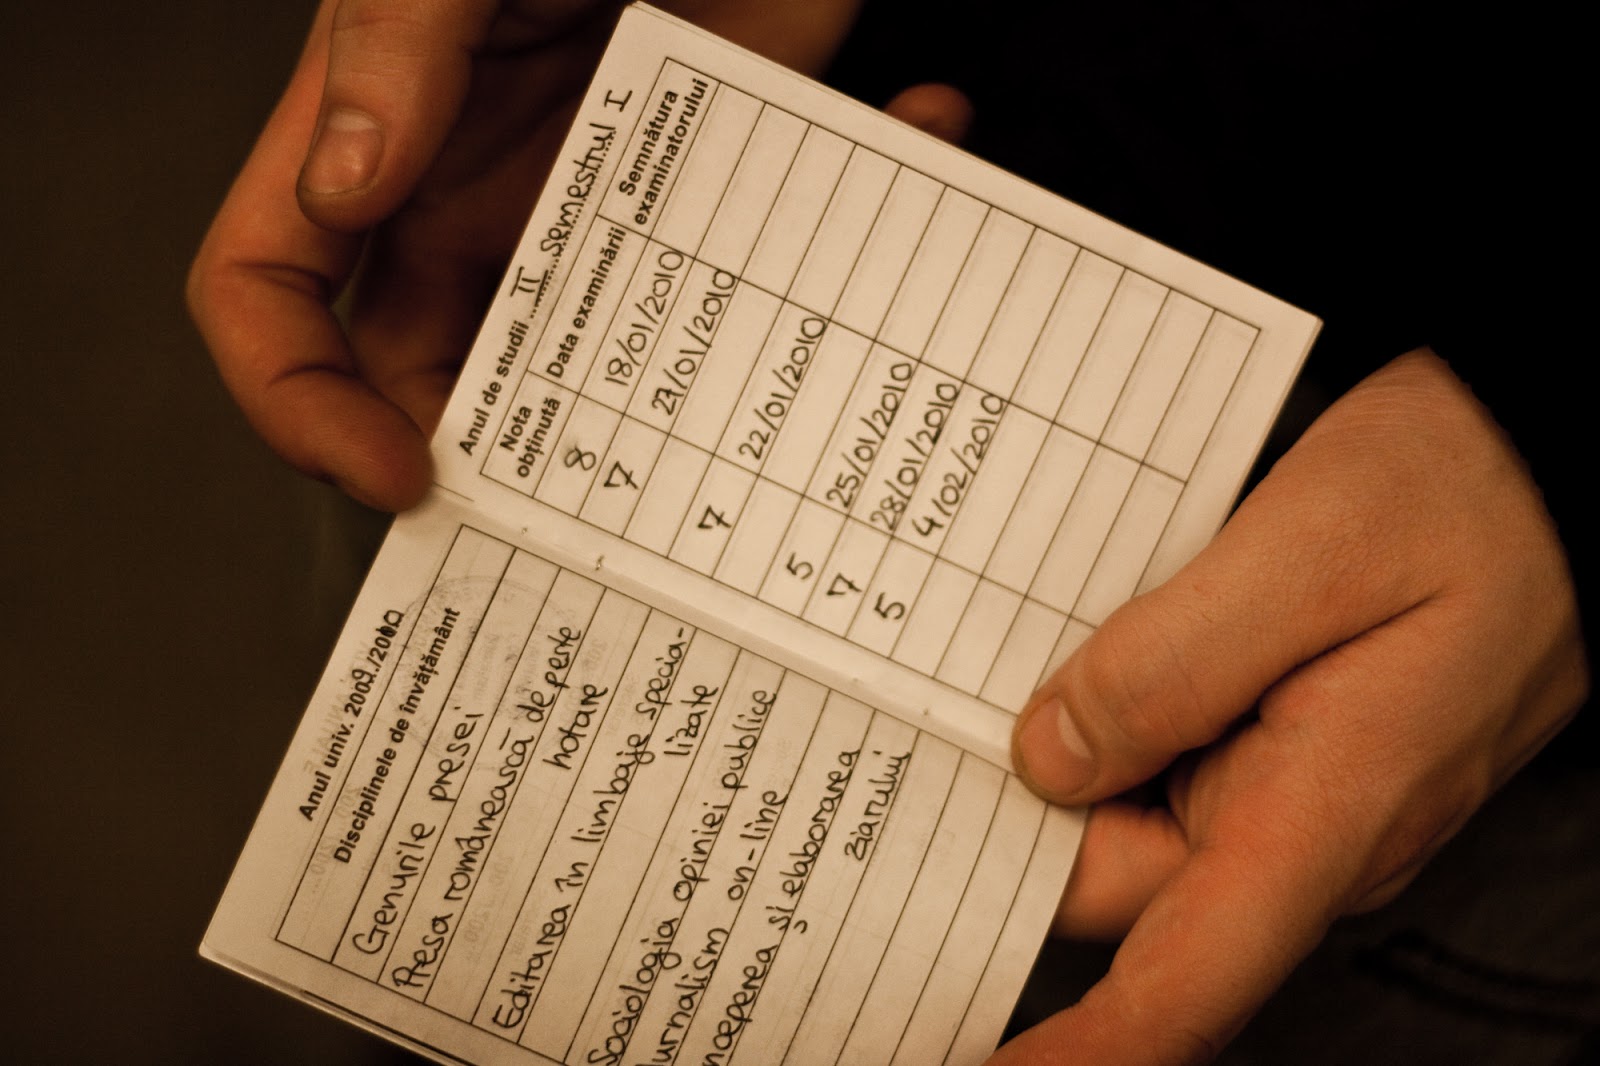 Anul univ. 2009./2010
Disciplinele de învățământ
Genurile presei
Presa românească de peste
hotare
Editarea în limbaje specia-
lizate
Sociologia opiniei publice
urnalism on-line
nceperea și elaborarea
ziarului
Anul de studii II semestrul I
Nota obținută Data examinării Semnătura examinatorului
8 18/01/2010
7 27/01/2010
7 22/01/2010
5 25/01/2010
7 28/01/2010
5 4/02/2010